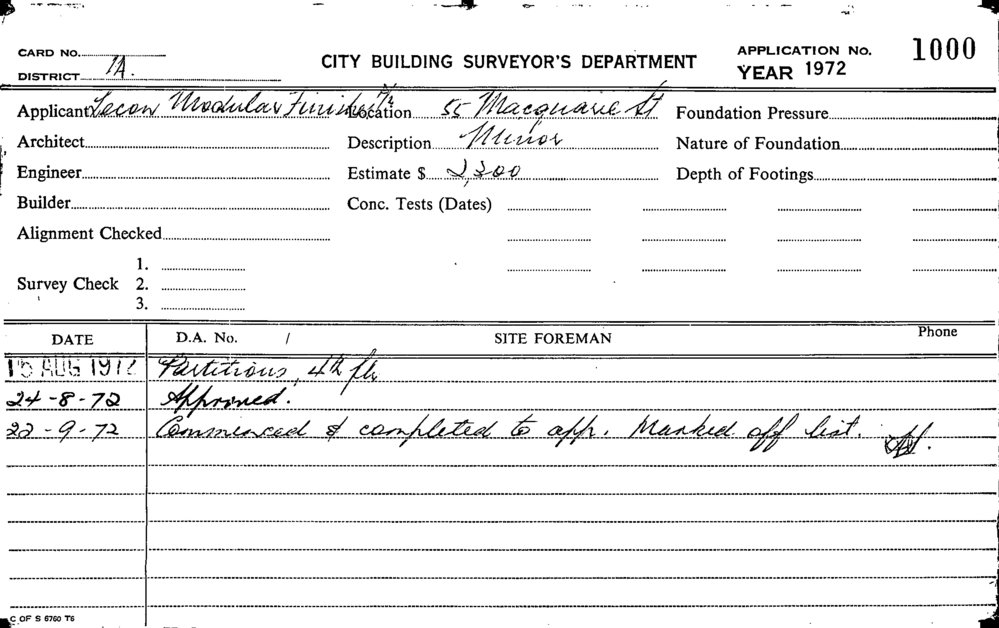 CARD NO. CITY BUILDING SURVEYOR'S DEPARTMENT APPLICATION No. 1000
DISTRICT 1A. YEAR 1972
Applicant Tecon Modular Finishes P/L Location 55 Macquarie St Foundation Pressure
Architect Description Minor Nature of Foundation
Engineer Estimate $ 2,300 Depth of Footings
Builder Conc. Tests (Dates)
Alignment Checked
1.
Survey Check 2.
3.
DATE D.A. No. / SITE FOREMAN Phone
15 AUG 1972 Partitions, 4th flr
24-8-72 Approved.
22-9-72 Commenced & completed to app. Marked off list.
C OF S 6760 T6